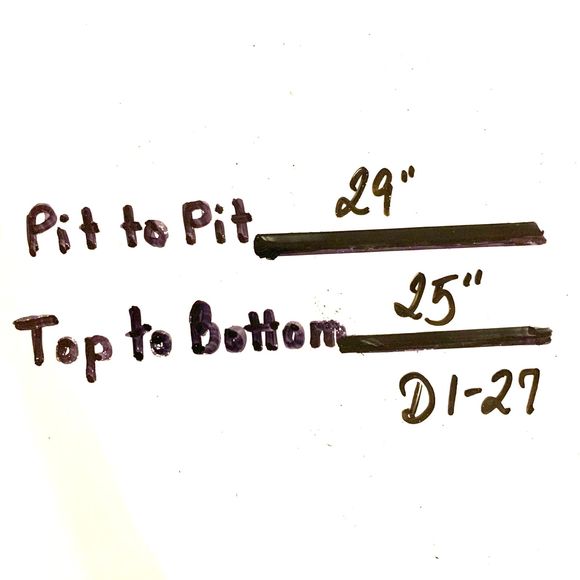 Pit to Pit 29"
Top to Bottom 25"
D1-27